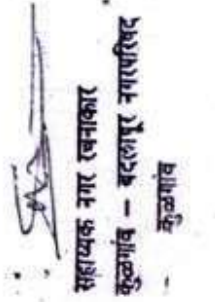 सहाय्यक नगर रचनाकार
कुळगांव – बदलापूर नगरपरिषद
कुळगांव